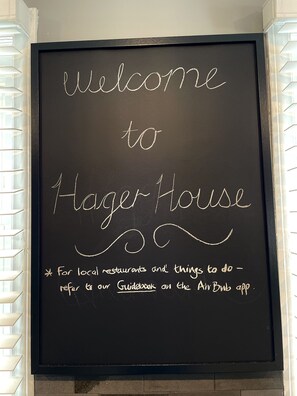 Welcome
to
Hager House
* For local restaurants and things to do -
refer to our Guidebook on the AirBnb app.